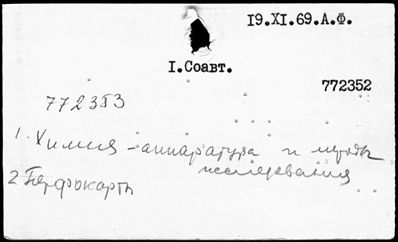 19.XI.69.А.Ф.
I.Соавт.
772352
772353
1. Химия - аппаратура и методы
исследования
2 Перфокарты